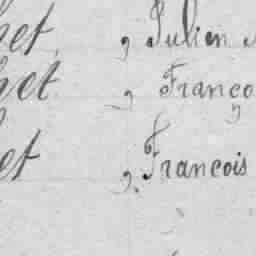 het, Julien
het, Franço
et, Francois